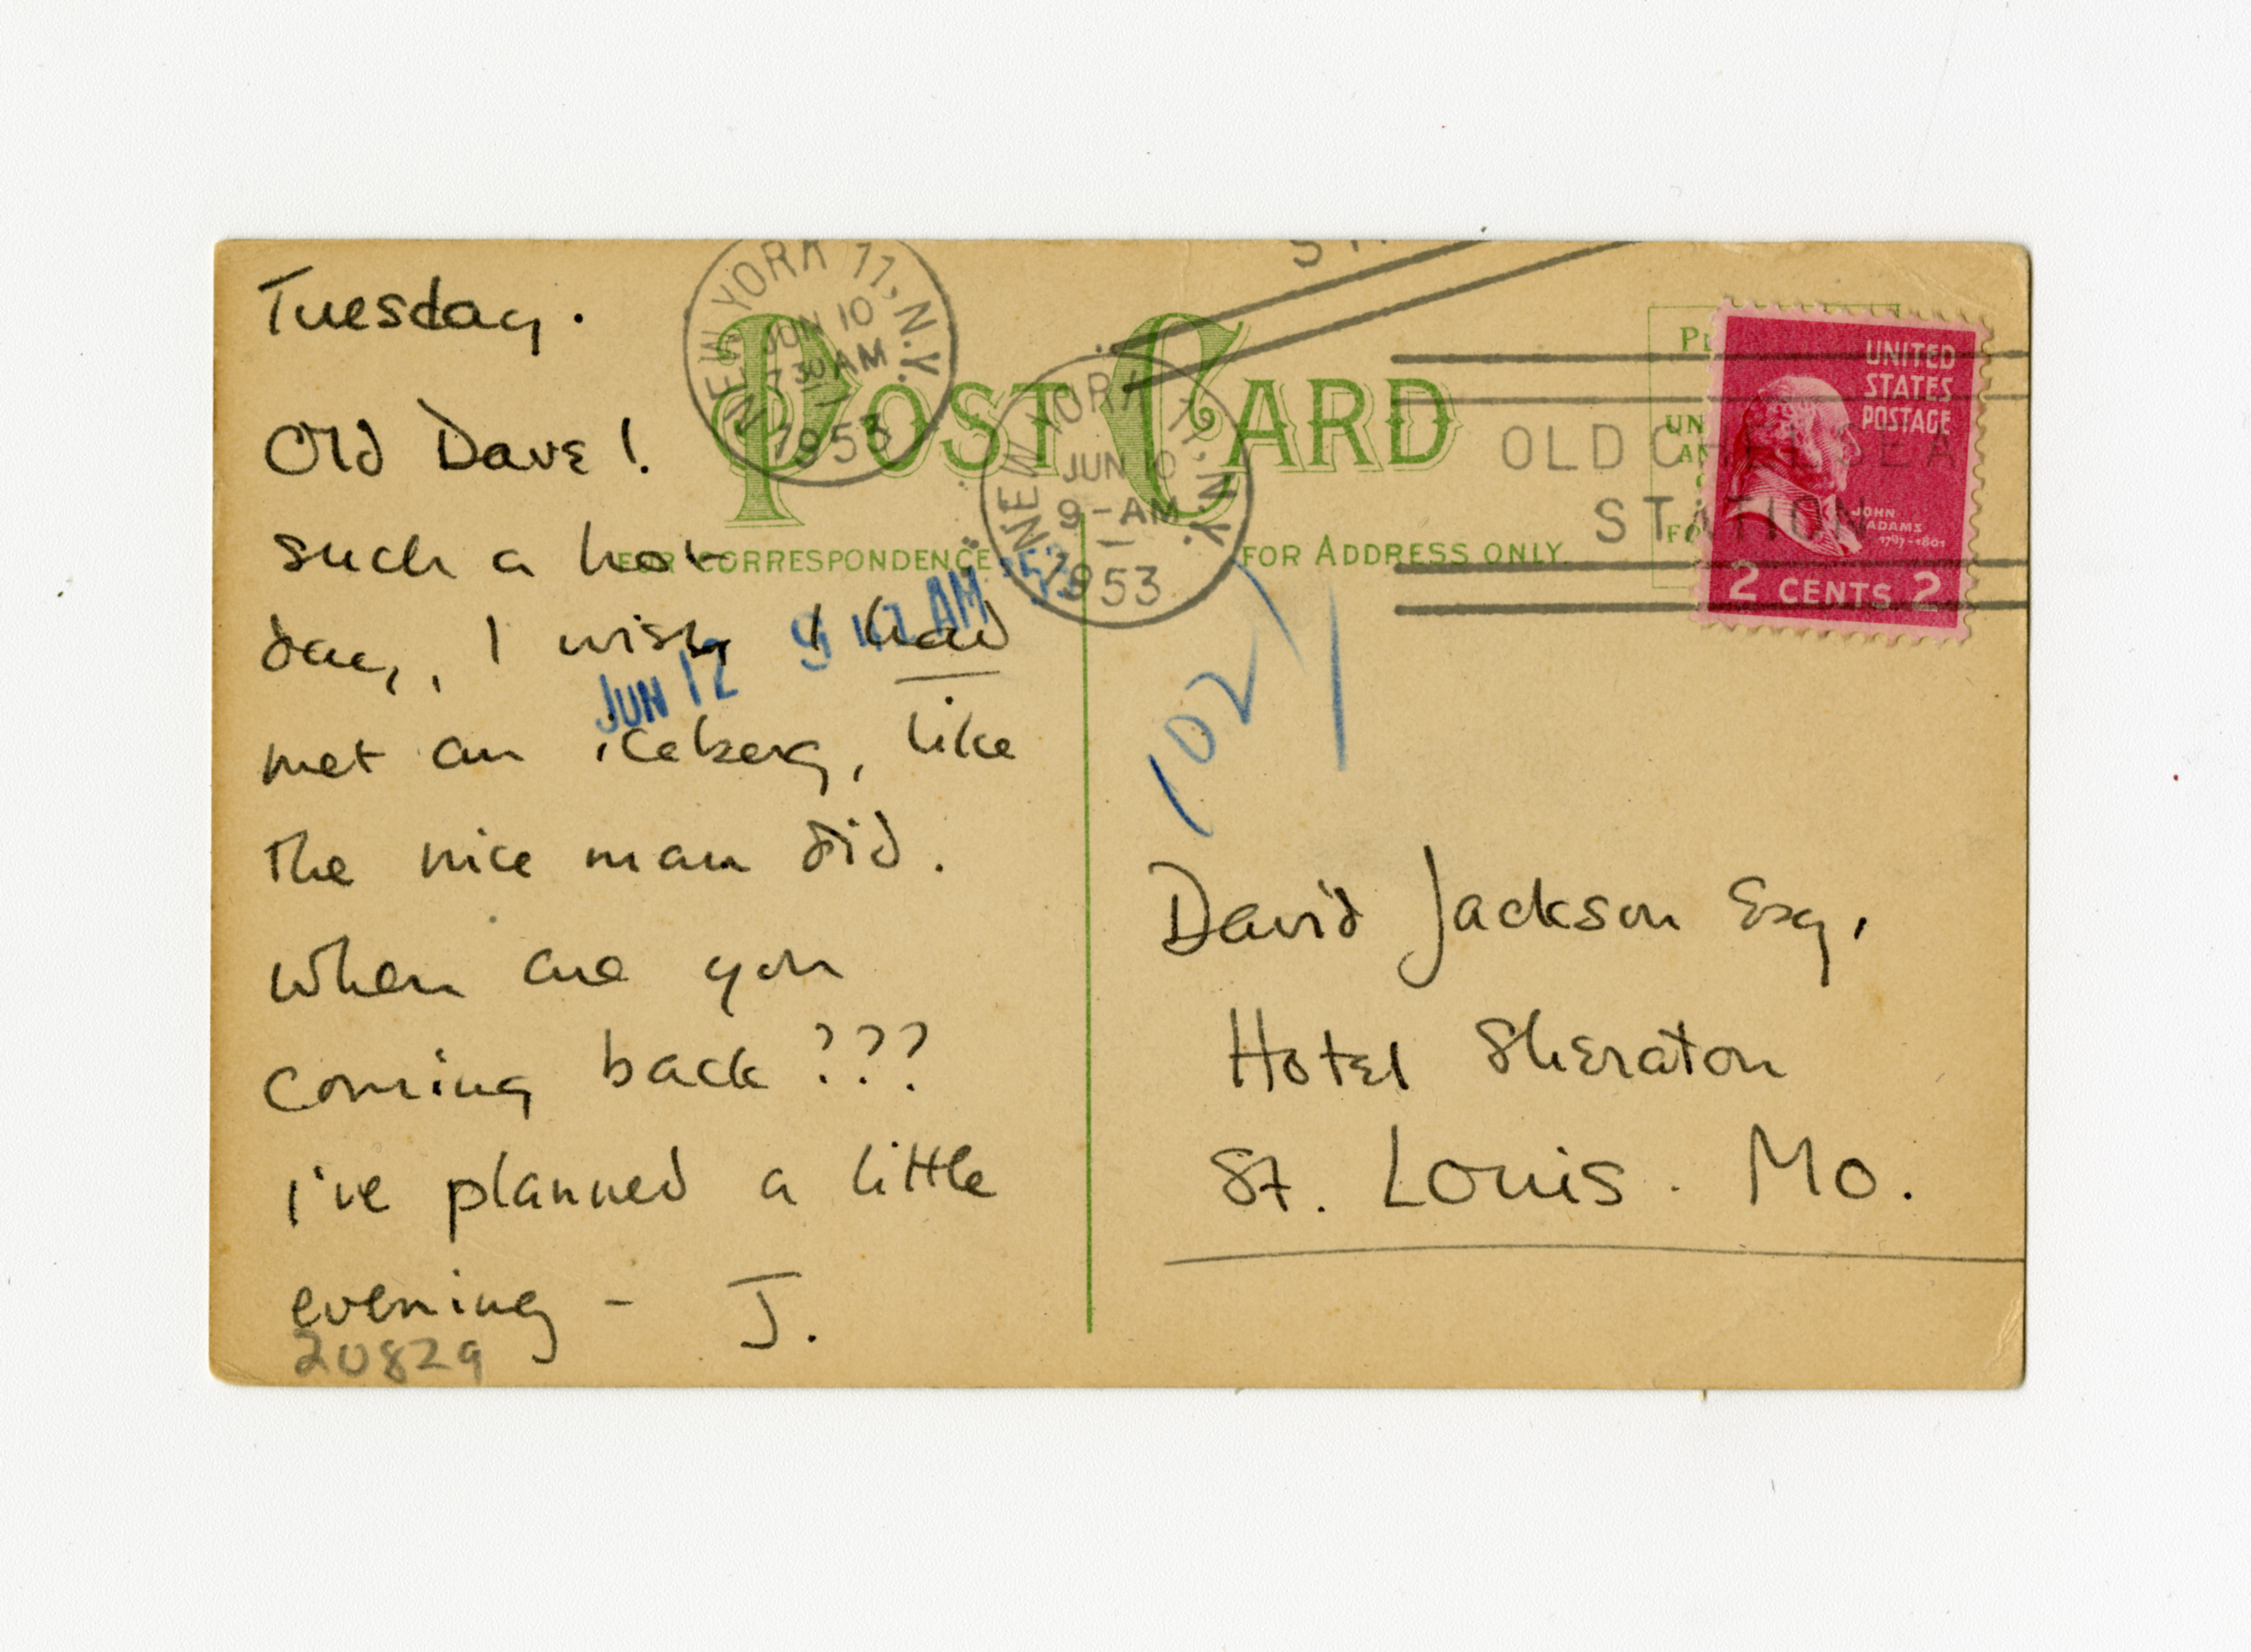 Tuesday.
Old Dave!
such a hot
day, I wish I had
met an iceberg, like
the nice man did.
When are you
coming back ???
I've planned a little
evening – J.
20829
NEW YORK 11, N.Y.
JUN 10
730 AM
1953
POST CARD
FOR CORRESPONDENCE
FOR ADDRESS ONLY.
NEW YORK 11, N.Y.
JUN 10
9-AM
1953
JUN 12 AM '53
OLD CHELSEA
STATION
UNITED
STATES
POSTAGE
JOHN
ADAMS
1797-1801
2 CENTS 2
1027
David Jackson Esq.
Hotel Sheraton
St. Louis. Mo.